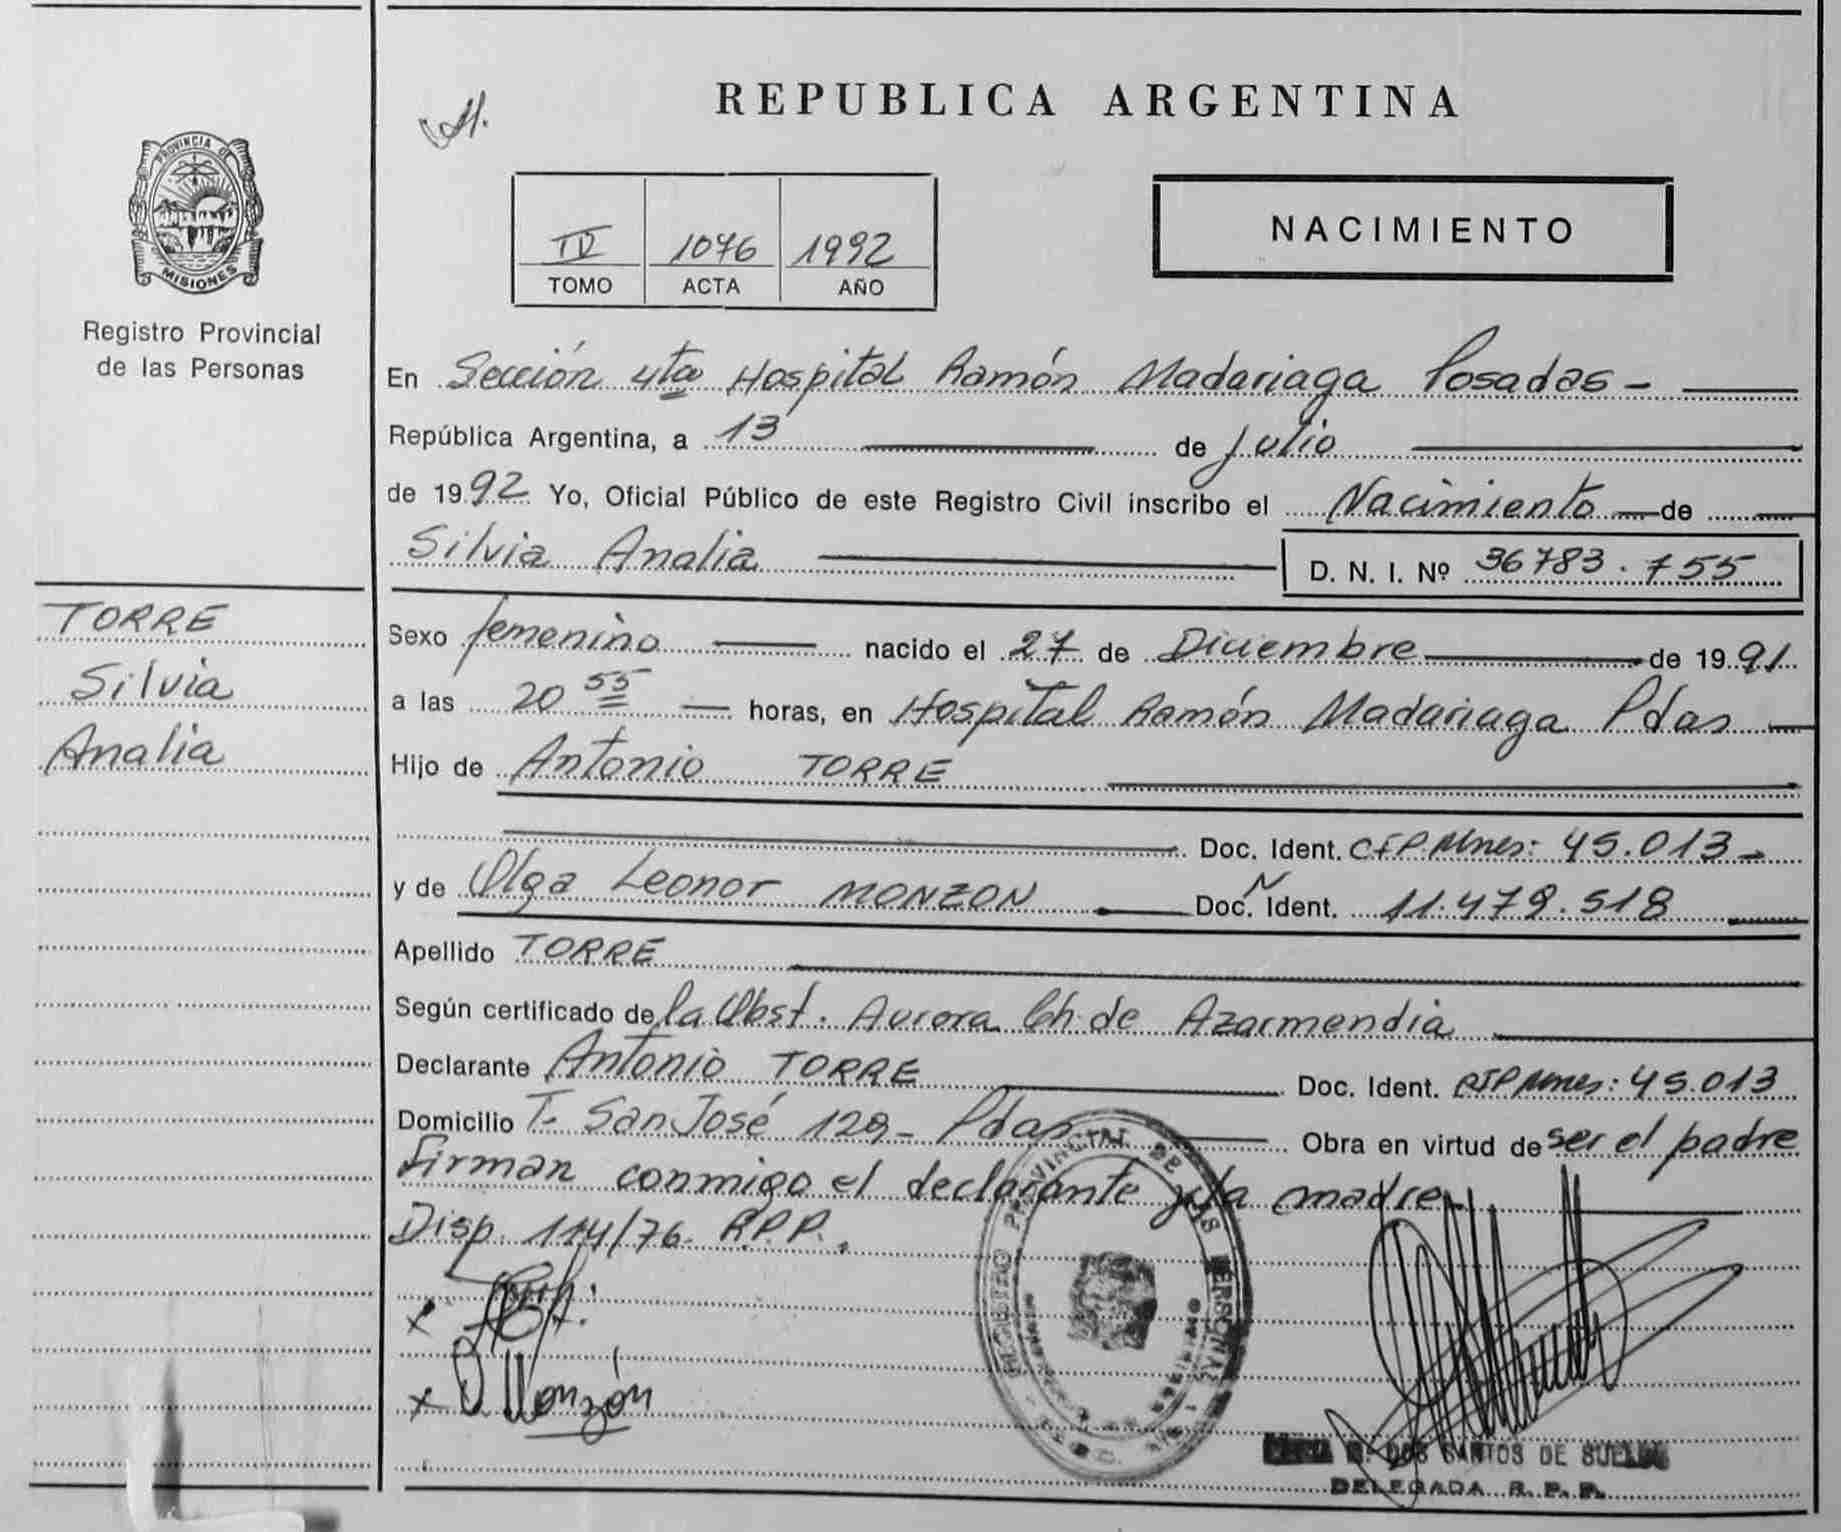 REPUBLICA ARGENTINA
PROVINCIA DE
MISIONES
Registro Provincial
de las Personas
IV 1076 1992
TOMO ACTA AÑO
NACIMIENTO
En Sección 4ta Hospital Ramón Madariaga Posadas -
República Argentina, a 13 de Julio
de 1992 Yo, Oficial Público de este Registro Civil inscribo el Nacimiento de
Silvia Analia D. N. I. Nº 36783.755
TORRE
Silvia
Analia
Sexo femenino nacido el 27 de Diciembre de 1991
a las 20 55 horas, en Hospital Ramón Madariaga Pdas
Hijo de Antonio TORRE
Doc. Ident. CIP Mnes: 45.013 -
y de Olga Leonor MONZON Doc. N Ident. 11.479.518
Apellido TORRE
Según certificado de la Obst. Aurora Ch. de Azarmendia
Declarante Antonio TORRE Doc. Ident. CIP Mnes: 45.013
Domicilio T. San José 129 - Pdas Obra en virtud de ser el padre
Firman conmigo el declarante y la madre
Disp. 114/76 R.P.P.
x
x O Monzón
REGISTRO PROVINCIAL DE LAS PERSONAS
DOS SANTOS DE
DELEGADA R. P. P.